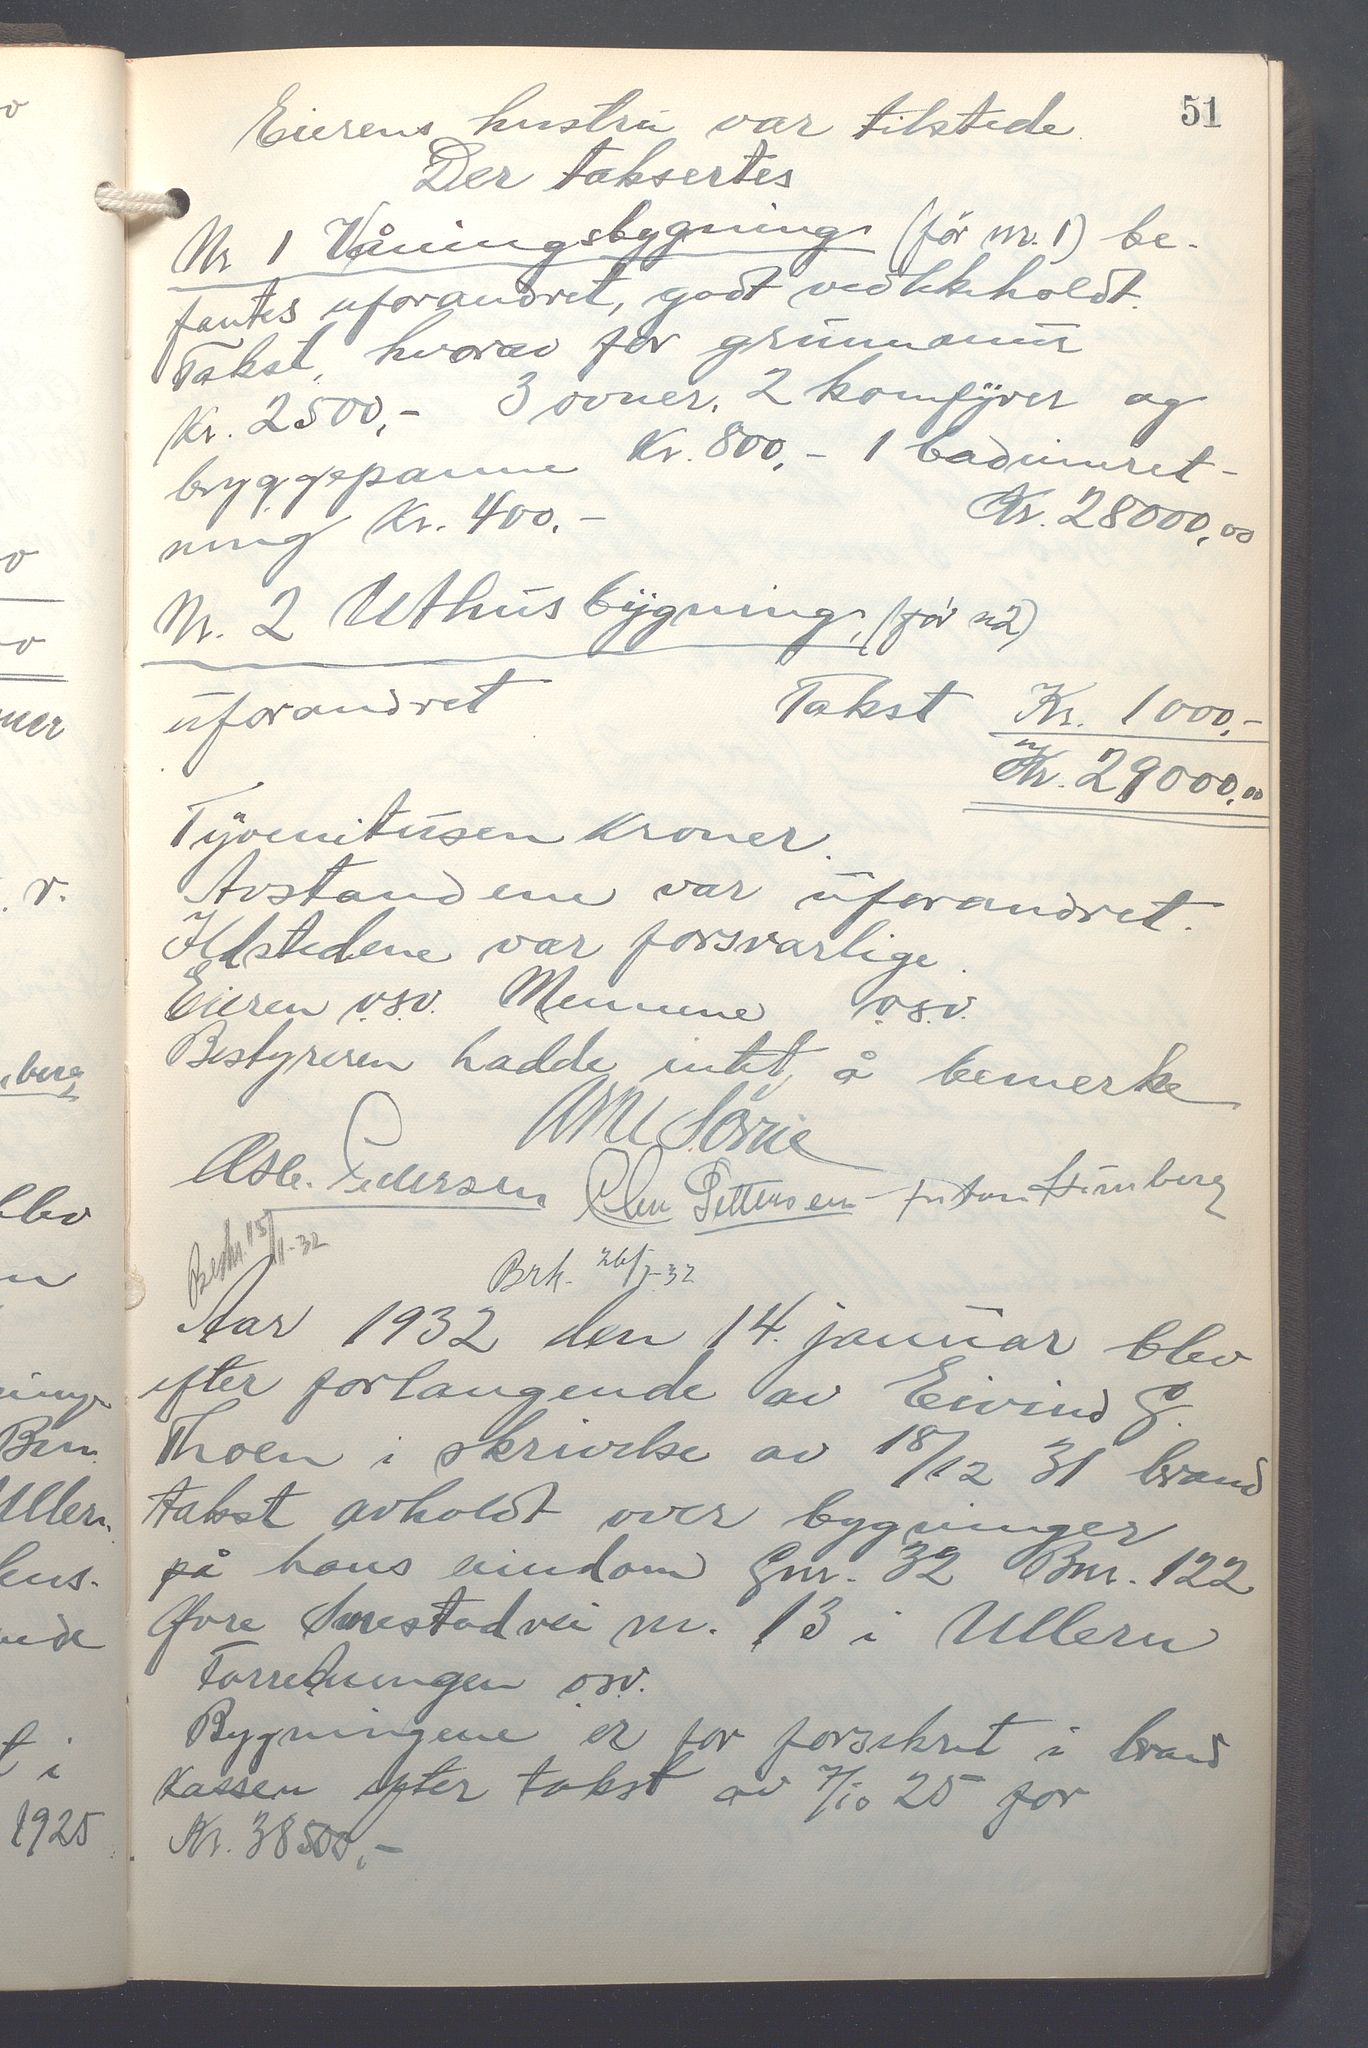 51
Eierens hustru var tilstede.
Der taksertes
Nr 1 Våningsbygning (før nr. 1) be-
fantes uforandret, godt vedlikeholdt.
Takst, hvorav for grunnmur
Kr. 2500,- 3 ovner, 2 komfyrer og
bryggepanne Kr. 800,- 1 badeinnret-
ning Kr. 400,- Kr. 28000,00
Nr. 2 Uthusbygning, (før n2)
uforandret Takst Kr. 1000,-
Kr. 29000,00
Tyvenitusen kroner.
Avstandene var uforandret.
Ildstedene var forsvarlige.
Eieren o.s.v. Mennene o.s.v.
Bestyreren hadde intet å bemerke
Sørlie
Pedersen Pettersen
Beskr. 15/1-32
Brk. 26/1-32
Aar 1932 den 14. januar blev
efter forlangende av Eivind G.
Thoen i skrivelse av 18/12 31 brand
takst avholdt over bygninger
på hans eiendom Gnr. 32 Bnr. 122
Øvre Smestadvei nr. 13 i Ullern
Forretningen osv.
Bygningene er før forsikret i brand
kassen efter takst av 7/10 25 for
Kr. 38500,-
ner
r.
berg
blev
Bnr.
Ullern
hus-
t i
1925